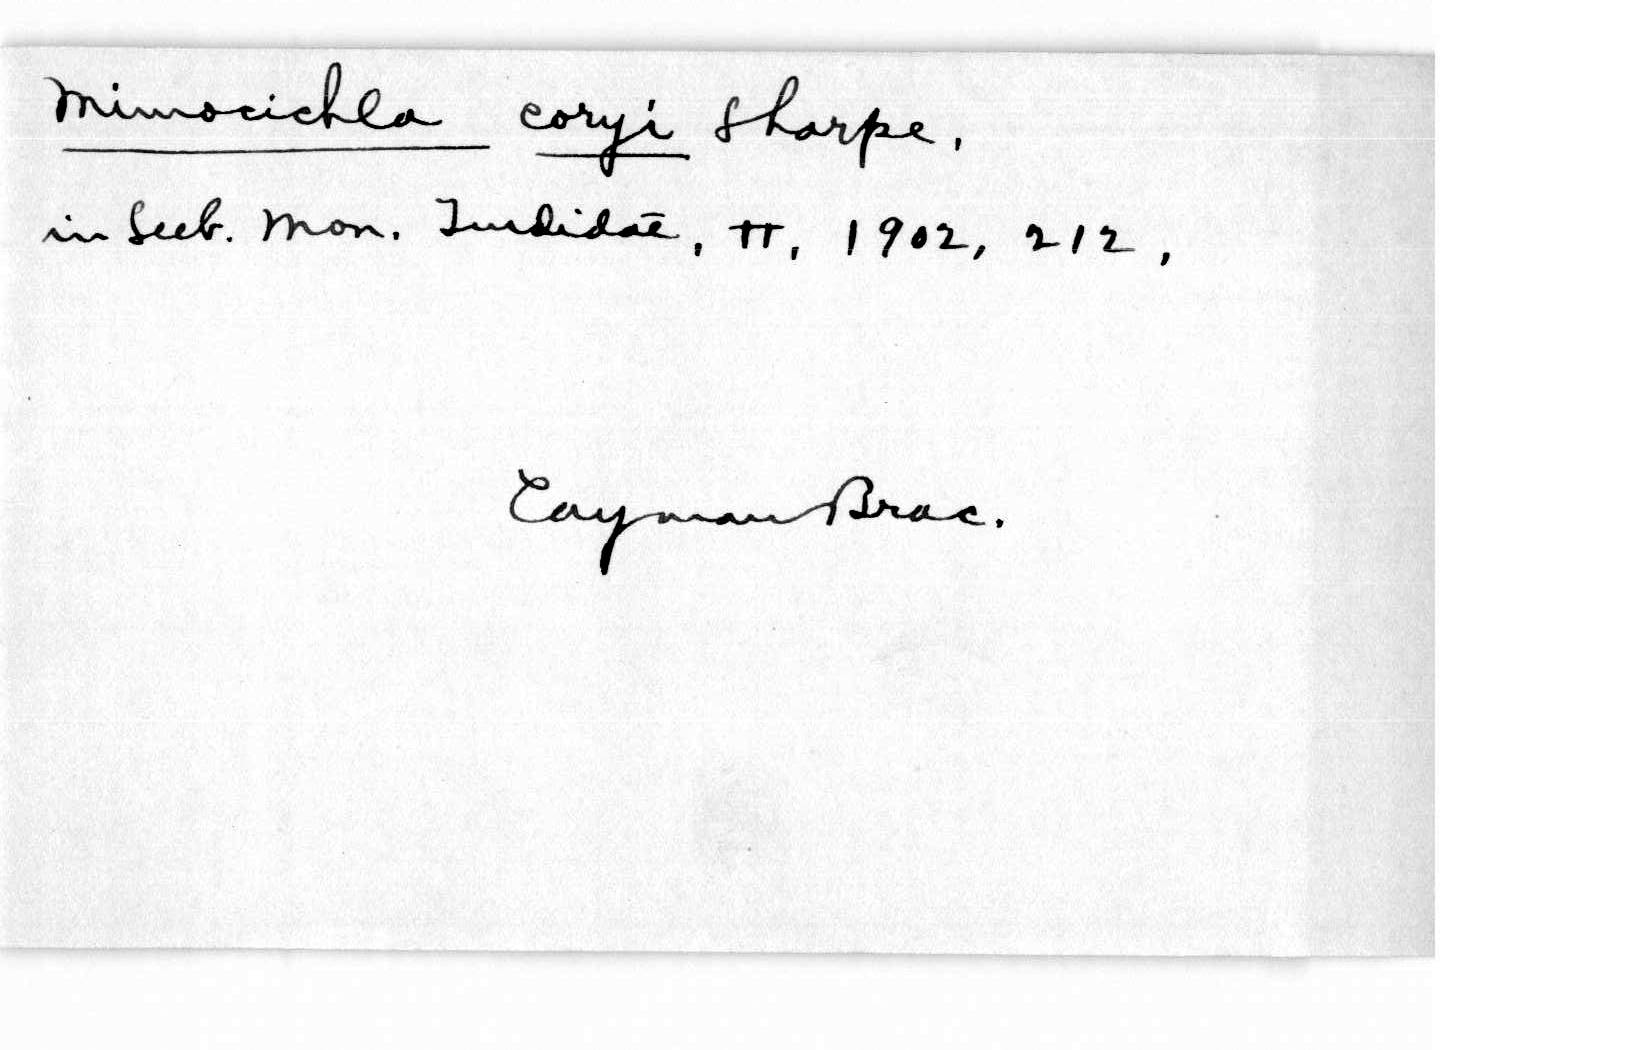 Mimocichla coryi Sharpe,
in Seeb. Mon. Turdidae, II, 1902, 212,
Cayman Brac.